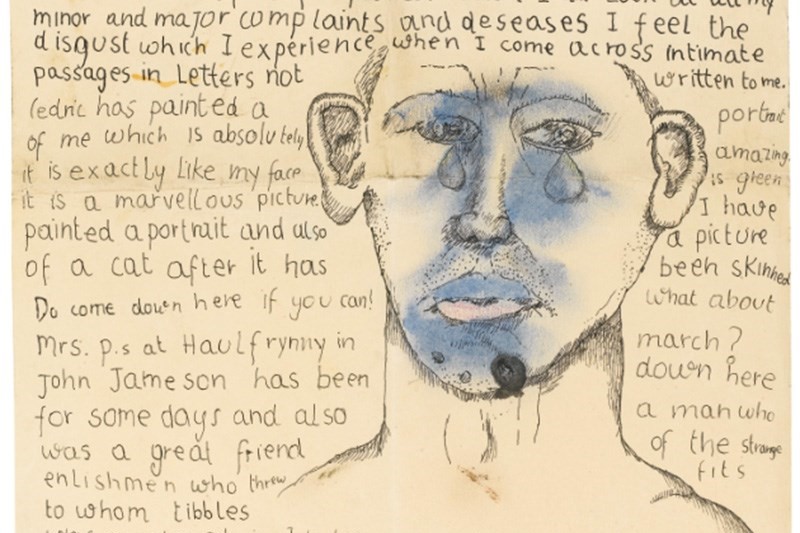 minor and major complaints and deseases I feel the
disgust which I experience when I come across intimate
passages in Letters not written to me.
Cedric has painted a portrait
of me which is absolutely amazing.
it is exactly like my face is green
it is a marvellous picture I have
painted a portrait and also a picture
of a cat after it has been skinned
Do come down here if you can! what about
Mrs. p.s at Haulfrynny in march?
John Jameson has been down here
for some days and also a man who
was a great friend of the strange
enlishmen who threw fits
to whom tibbles